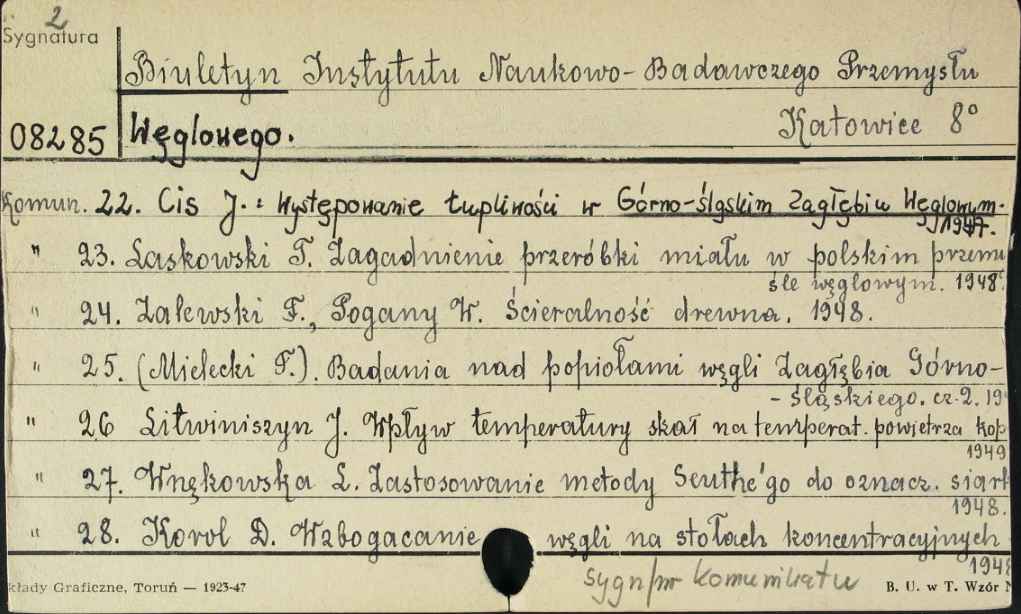 2
Sygnatura
Biuletyn Instytutu Naukowo-Badawczego Przemysłu
08285 Węglowego. Katowice 8°
Komun. 22. Cis J.: Występowanie łupliwości w Górno-śląskim Zagłębiu Węglowym.
1947.
" 23. Laskowski T. Zagadnienie przeróbki miału w polskim przemy
śle węglowym. 1948.
" 24. Zalewski F., Pogany W. Ścieralność drewna. 1948.
" 25. (Mielecki T.). Badania nad popiołami węgli Zagłębia Górno-
- śląskiego. cz. 2. 19
" 26 Litwiniszyn J. Wpływ temperatury skał na temperat. powietrza kop
1949
" 27. Wnękowska L. Zastosowanie metody Seuthe'go do oznacz. siark
1948.
" 28. Korol D. Wzbogacanie węgli na stołach koncentracyjnych
1948
sygn/nr komunikatu
kłady Graficzne, Toruń — 1923-47 B. U. w T. Wzór N